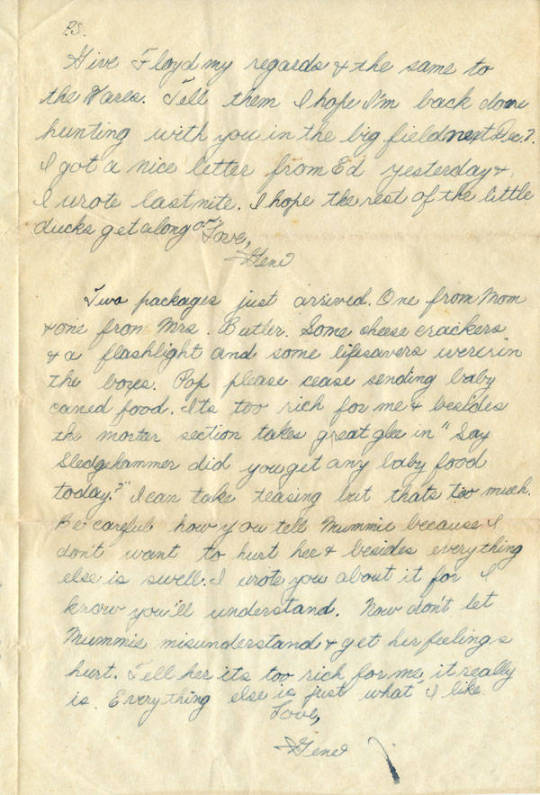 P.S.
Give Floyd my regards & the same to
the Wares. Tell them I hope I'm back down
hunting with you in the big field next Dec.?
I got a nice letter from Ed yesterday &
I wrote last nite. I hope the rest of the little
ducks get along OK
Love,
Gene
Two packages just arrived. One from Mom
& one from Mrs. Butler. Some cheese crackers
& a flashlight and some lifesavers were in
the boxes. Pop please cease sending baby
caned food. Its too rich for me & besides
the mortar section takes great glee in "Say
Sledgehammer did you get any baby food
today?" I can take teasing but thats too much.
Be careful how you tell Mummie because I
don't want to hurt her & besides everything
else is swell. I wrote you about it for I
know you'll understand. Now don't let
Mummie misunderstand & get her feelings
hurt. Tell her its too rich for me, it really
is. Everything else is just what I like.
Love,
Gene